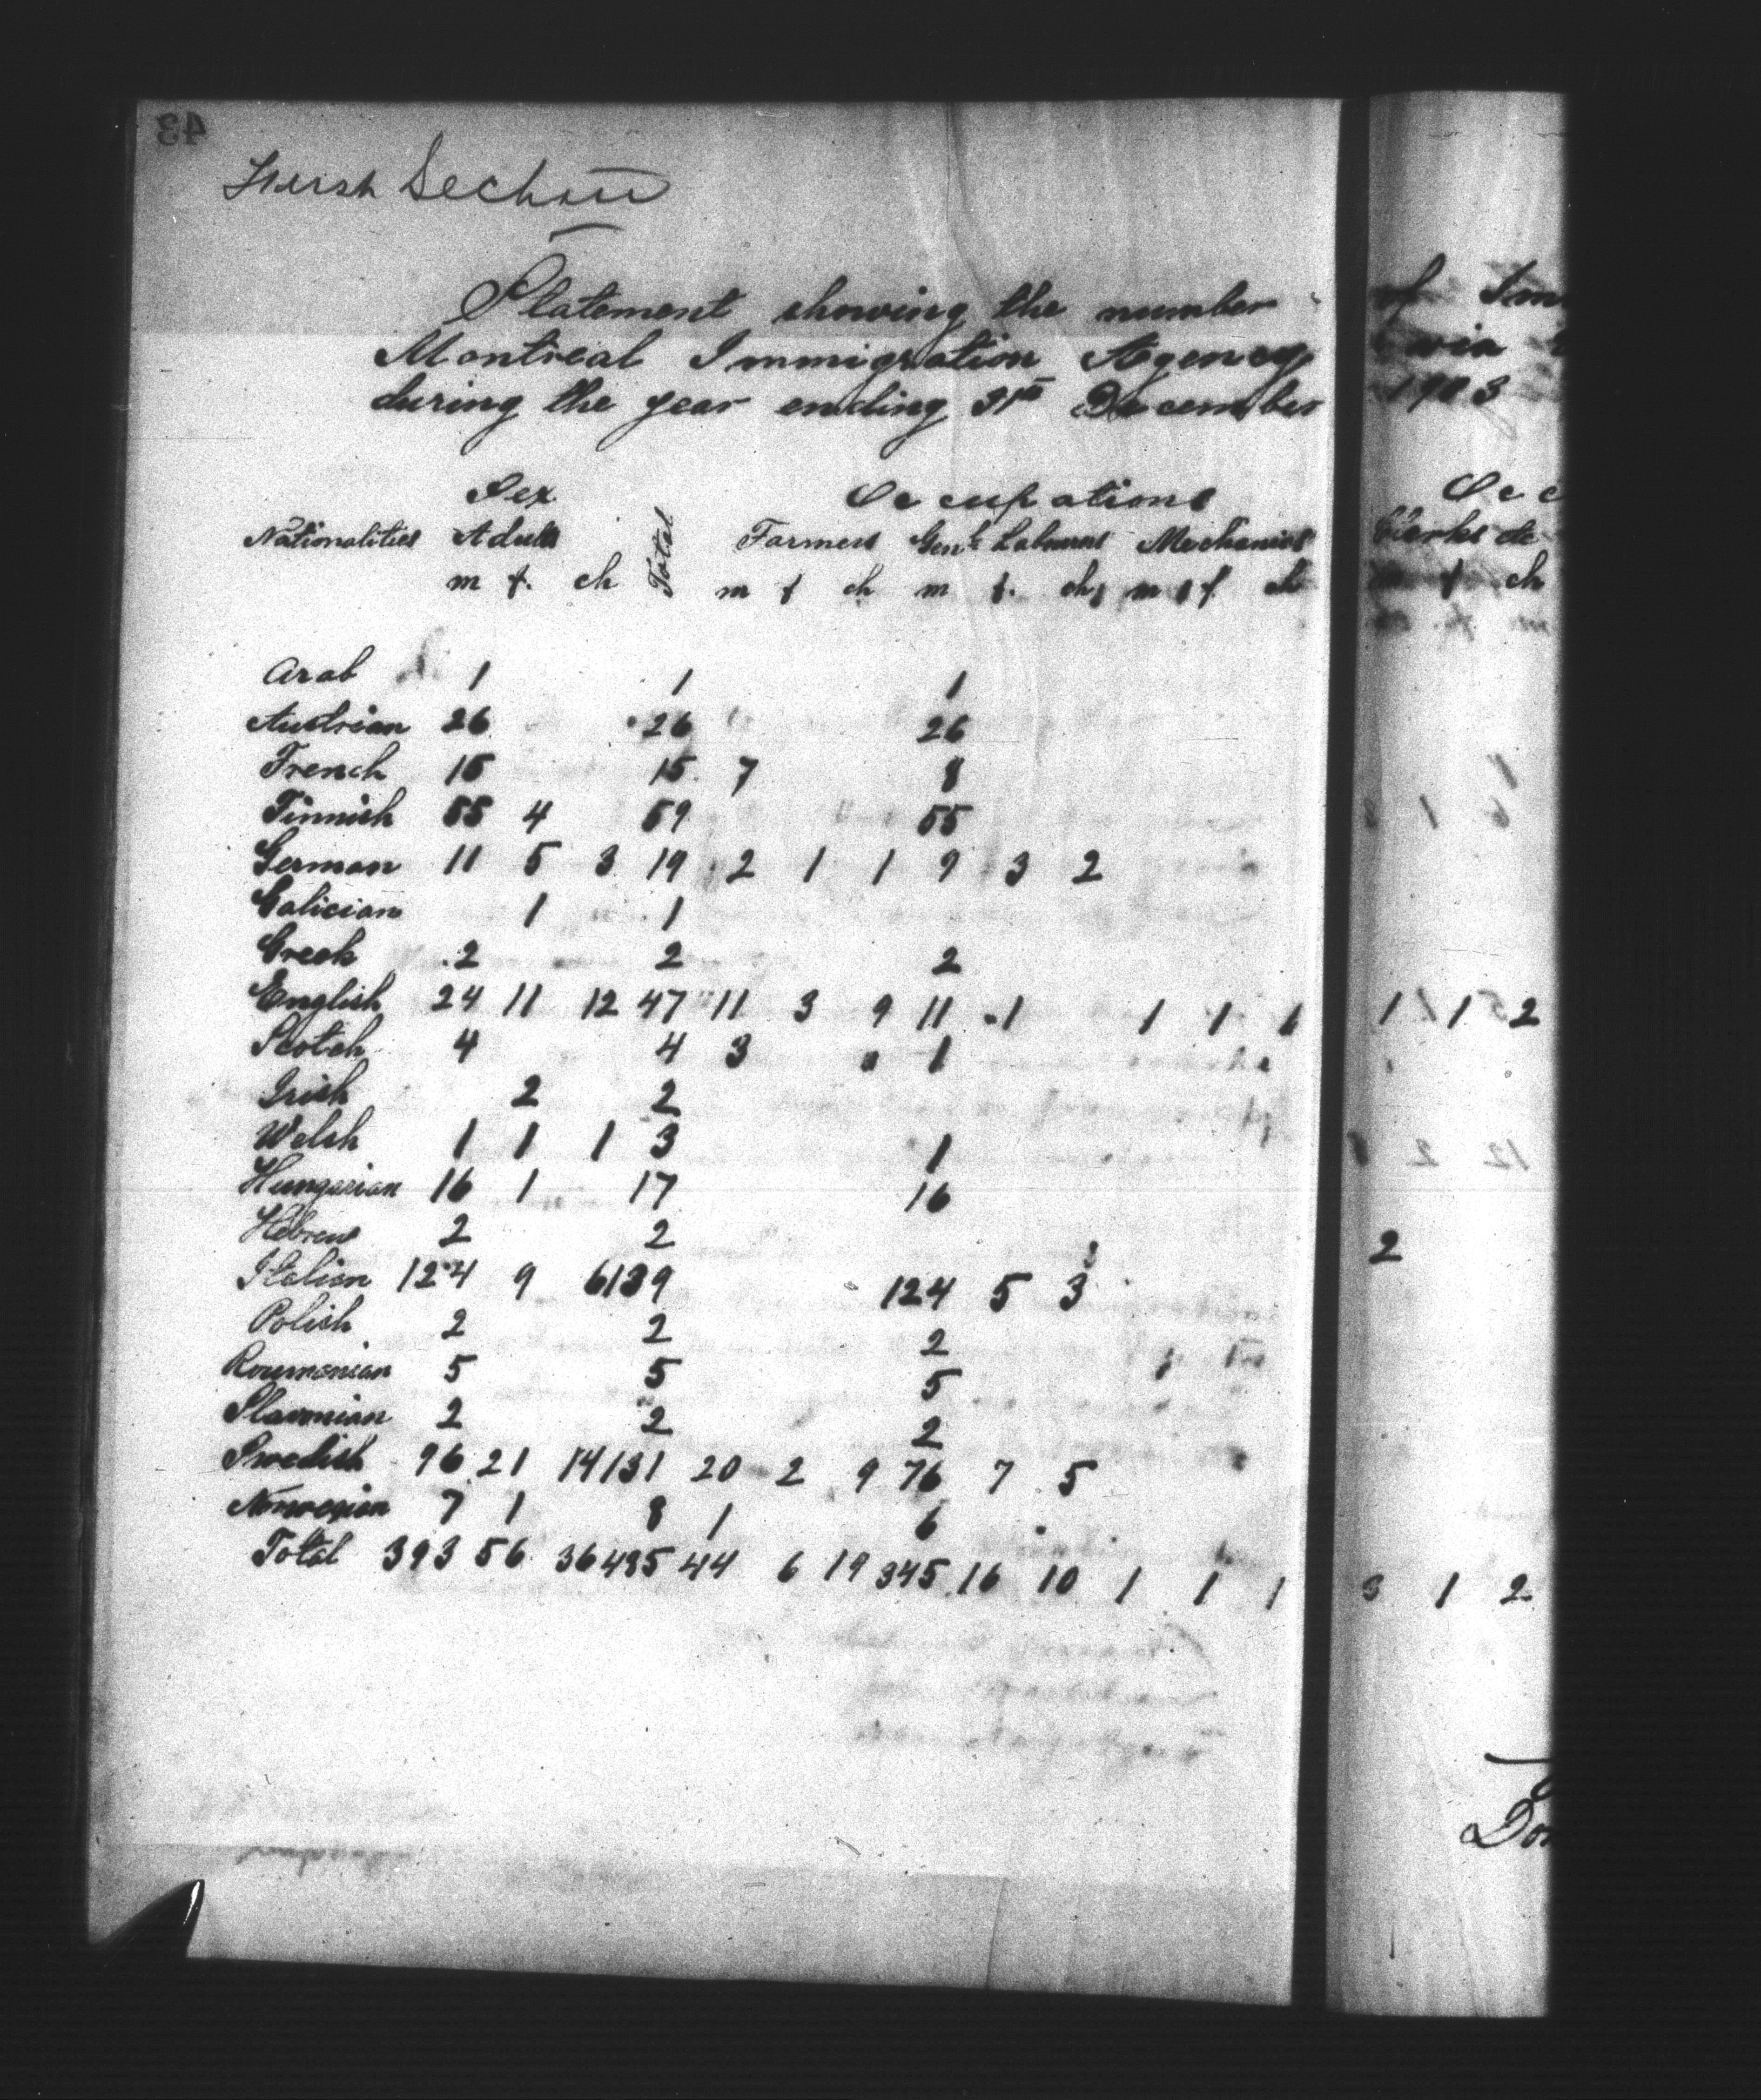 43
First Section
Statement showing the number of Imm
Montreal Immigration Agency via
during the year ending 31st December 1903
Sex Occupations Occ
Nationalities Adults Total Farmers Genl Labourers Mechanics Clerks etc
m f. ch m f ch m f. ch m f. ch m f ch
Arab 1 1 1
Austrian 26 26 26
French 15 15 7 8
Finnish 55 4 59 55
German 11 5 3 19 2 1 1 9 3 2
Galician 1 1
Greek 2 2 2
English 24 11 12 47 11 3 9 11 1 1 1 1 1 1 2
Scotch 4 4 3 1
Irish 2 2
Welsh 1 1 1 3 1
Hungarian 16 1 17 16
Hebrew 2 2 2
Italian 124 9 6 139 124 5 3
Polish 2 2 2
Roumanian 5 5 5
Slavonian 2 2 2
Swedish 96 21 14 131 20 2 9 76 7 5
Norwegian 7 1 8 1 6
Total 393 56 36 485 44 6 19 345 16 10 1 1 1 3 1 2